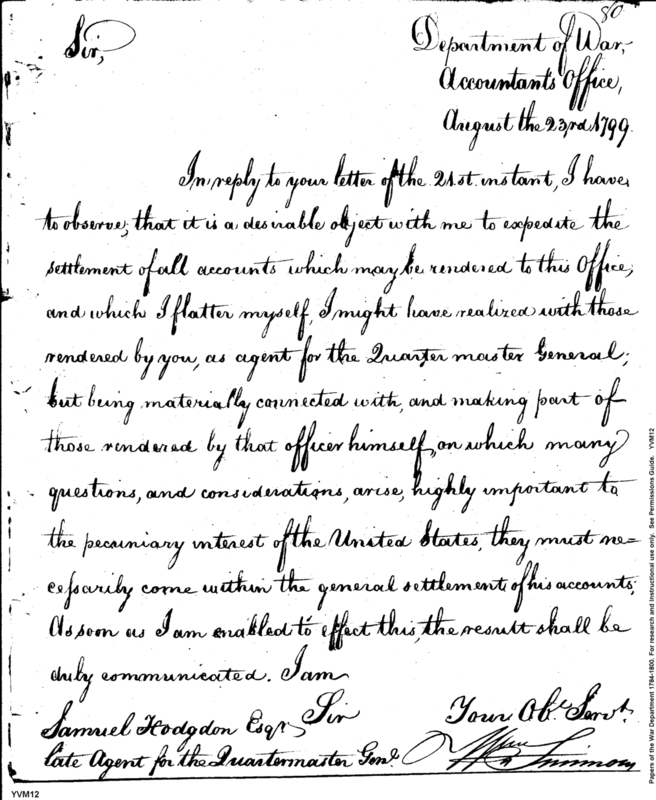 80
Sir,
Department of War,
Accountants Office,
August the 23rd. 1799.
In reply to your letter of the 21st. instant, I have
to observe, that it is a desirable object with me to expedite the
settlement of all accounts which may be rendered to this Office,
and which I flatter myself, I might have realized with those
rendered by you, as agent for the Quarter master General;
but being materially connected with, and making part of
those rendered by that officer himself, on which many
questions, and considerations, arise, highly important to
the pecuniary interest of the United States, they must ne=
cessarily come within the general settlement of his accounts;
As soon as I am enabled to effect this, the result shall be
duly communicated. I am
Sir
Your Obt. Servt.
Samuel Hodgdon Esqr.
late Agent for the Quartermaster Genl.
Wm Simmons
YVM12
Papers of the War Department 1784-1800. For research and instructional use only. See Permissions Guide. YVM12